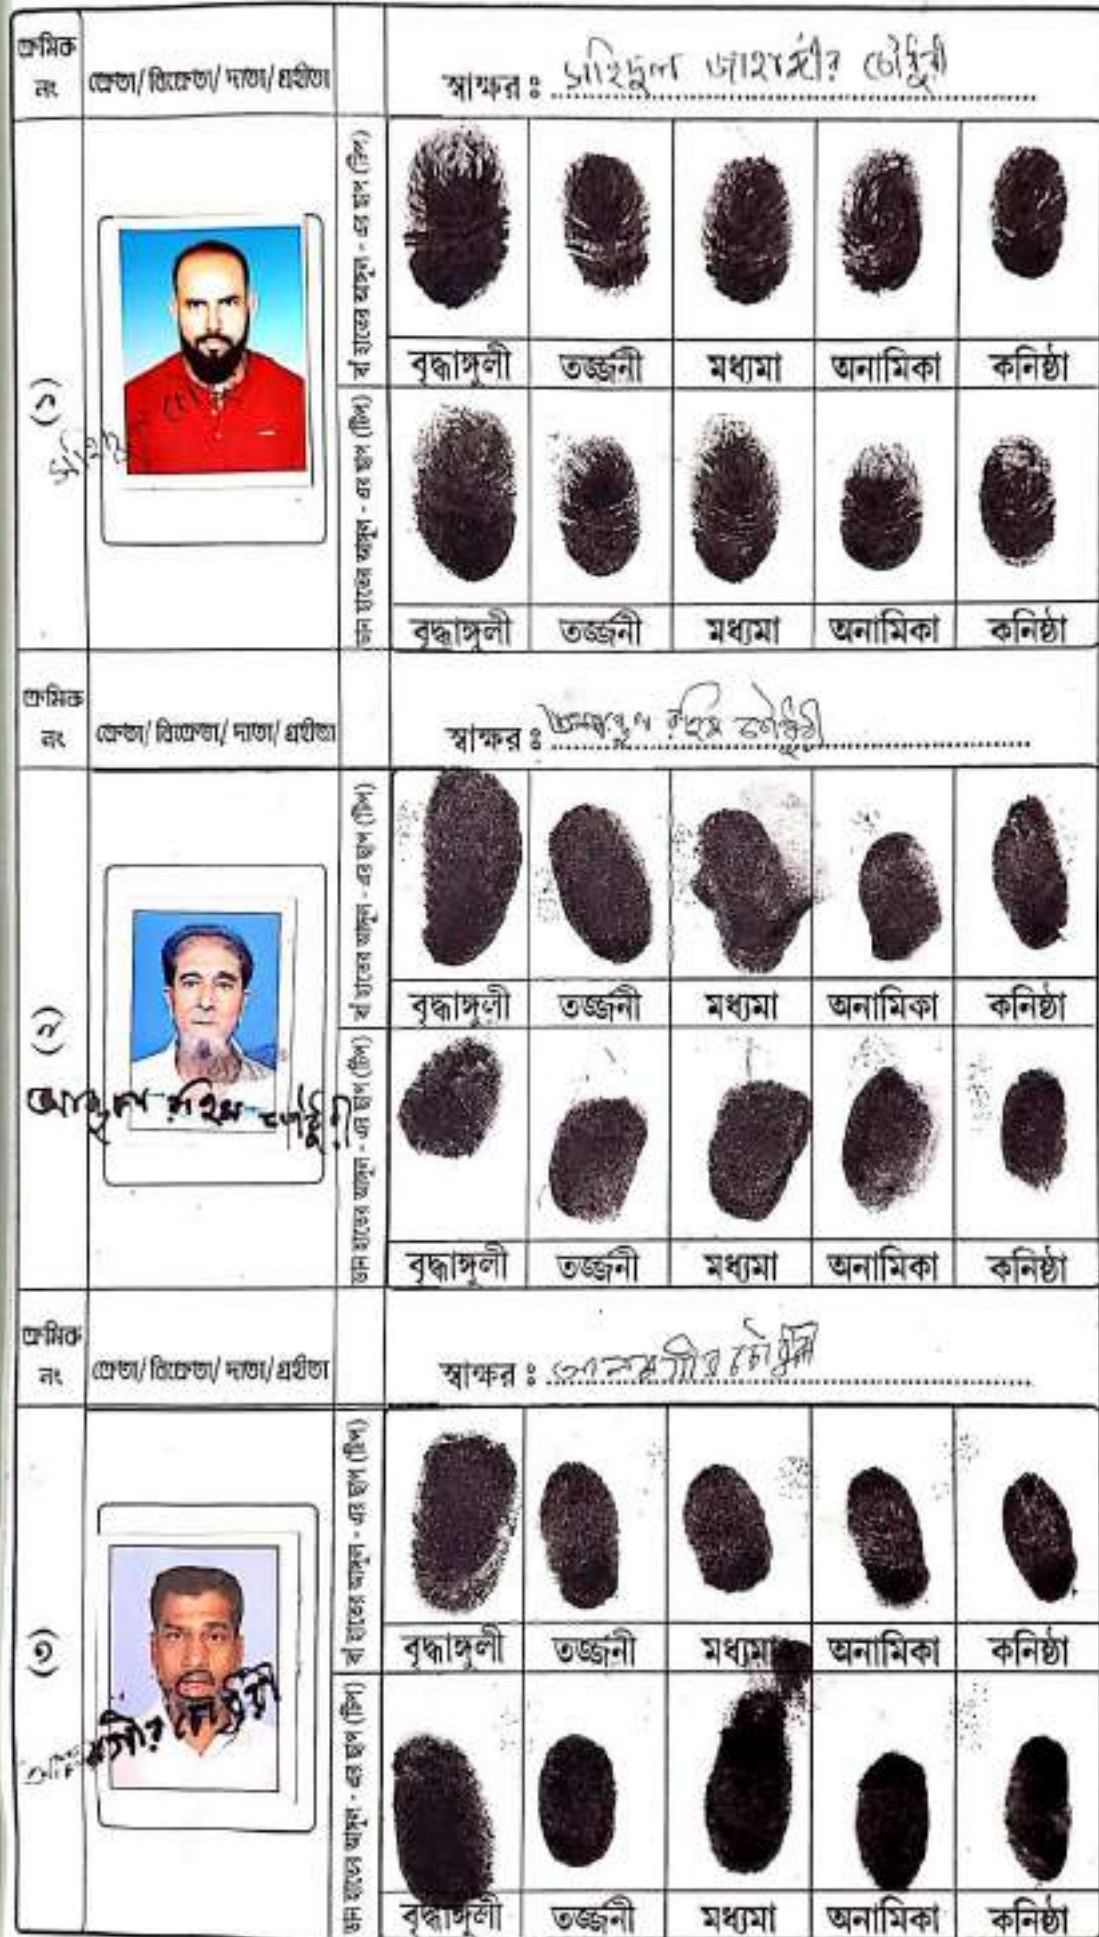 ক্রমিক নং
ক্রেতা/ বিক্রেতা/ দাতা/ গ্রহীতা
স্বাক্ষর ঃ সহিদুল জাহাঙ্গীর চৌধুরী
(১)
বাঁ হাতের আঙ্গুল - এর ছাপ (টিপ)
বৃদ্ধাঙ্গুলী তর্জ্জনী মধ্যমা অনামিকা কনিষ্ঠা
ডান হাতের আঙ্গুল - এর ছাপ (টিপ)
বৃদ্ধাঙ্গুলী তর্জ্জনী মধ্যমা অনামিকা কনিষ্ঠা
ক্রমিক নং
ক্রেতা/ বিক্রেতা/ দাতা/ গ্রহীতা
স্বাক্ষর ঃ রহিম চৌধুরী
(২)
আব্দুল রহিম চৌধুরী
বাঁ হাতের আঙ্গুল - এর ছাপ (টিপ)
বৃদ্ধাঙ্গুলী তর্জ্জনী মধ্যমা অনামিকা কনিষ্ঠা
ডান হাতের আঙ্গুল - এর ছাপ (টিপ)
বৃদ্ধাঙ্গুলী তর্জ্জনী মধ্যমা অনামিকা কনিষ্ঠা
ক্রমিক নং
ক্রেতা/ বিক্রেতা/ দাতা/ গ্রহীতা
স্বাক্ষর ঃ আলমগীর চৌধুরী
(৩)
আলমগীর চৌধুরী
বাঁ হাতের আঙ্গুল - এর ছাপ (টিপ)
বৃদ্ধাঙ্গুলী তর্জ্জনী মধ্যমা অনামিকা কনিষ্ঠা
ডান হাতের আঙ্গুল - এর ছাপ (টিপ)
বৃদ্ধাঙ্গুলী তর্জ্জনী মধ্যমা অনামিকা কনিষ্ঠা